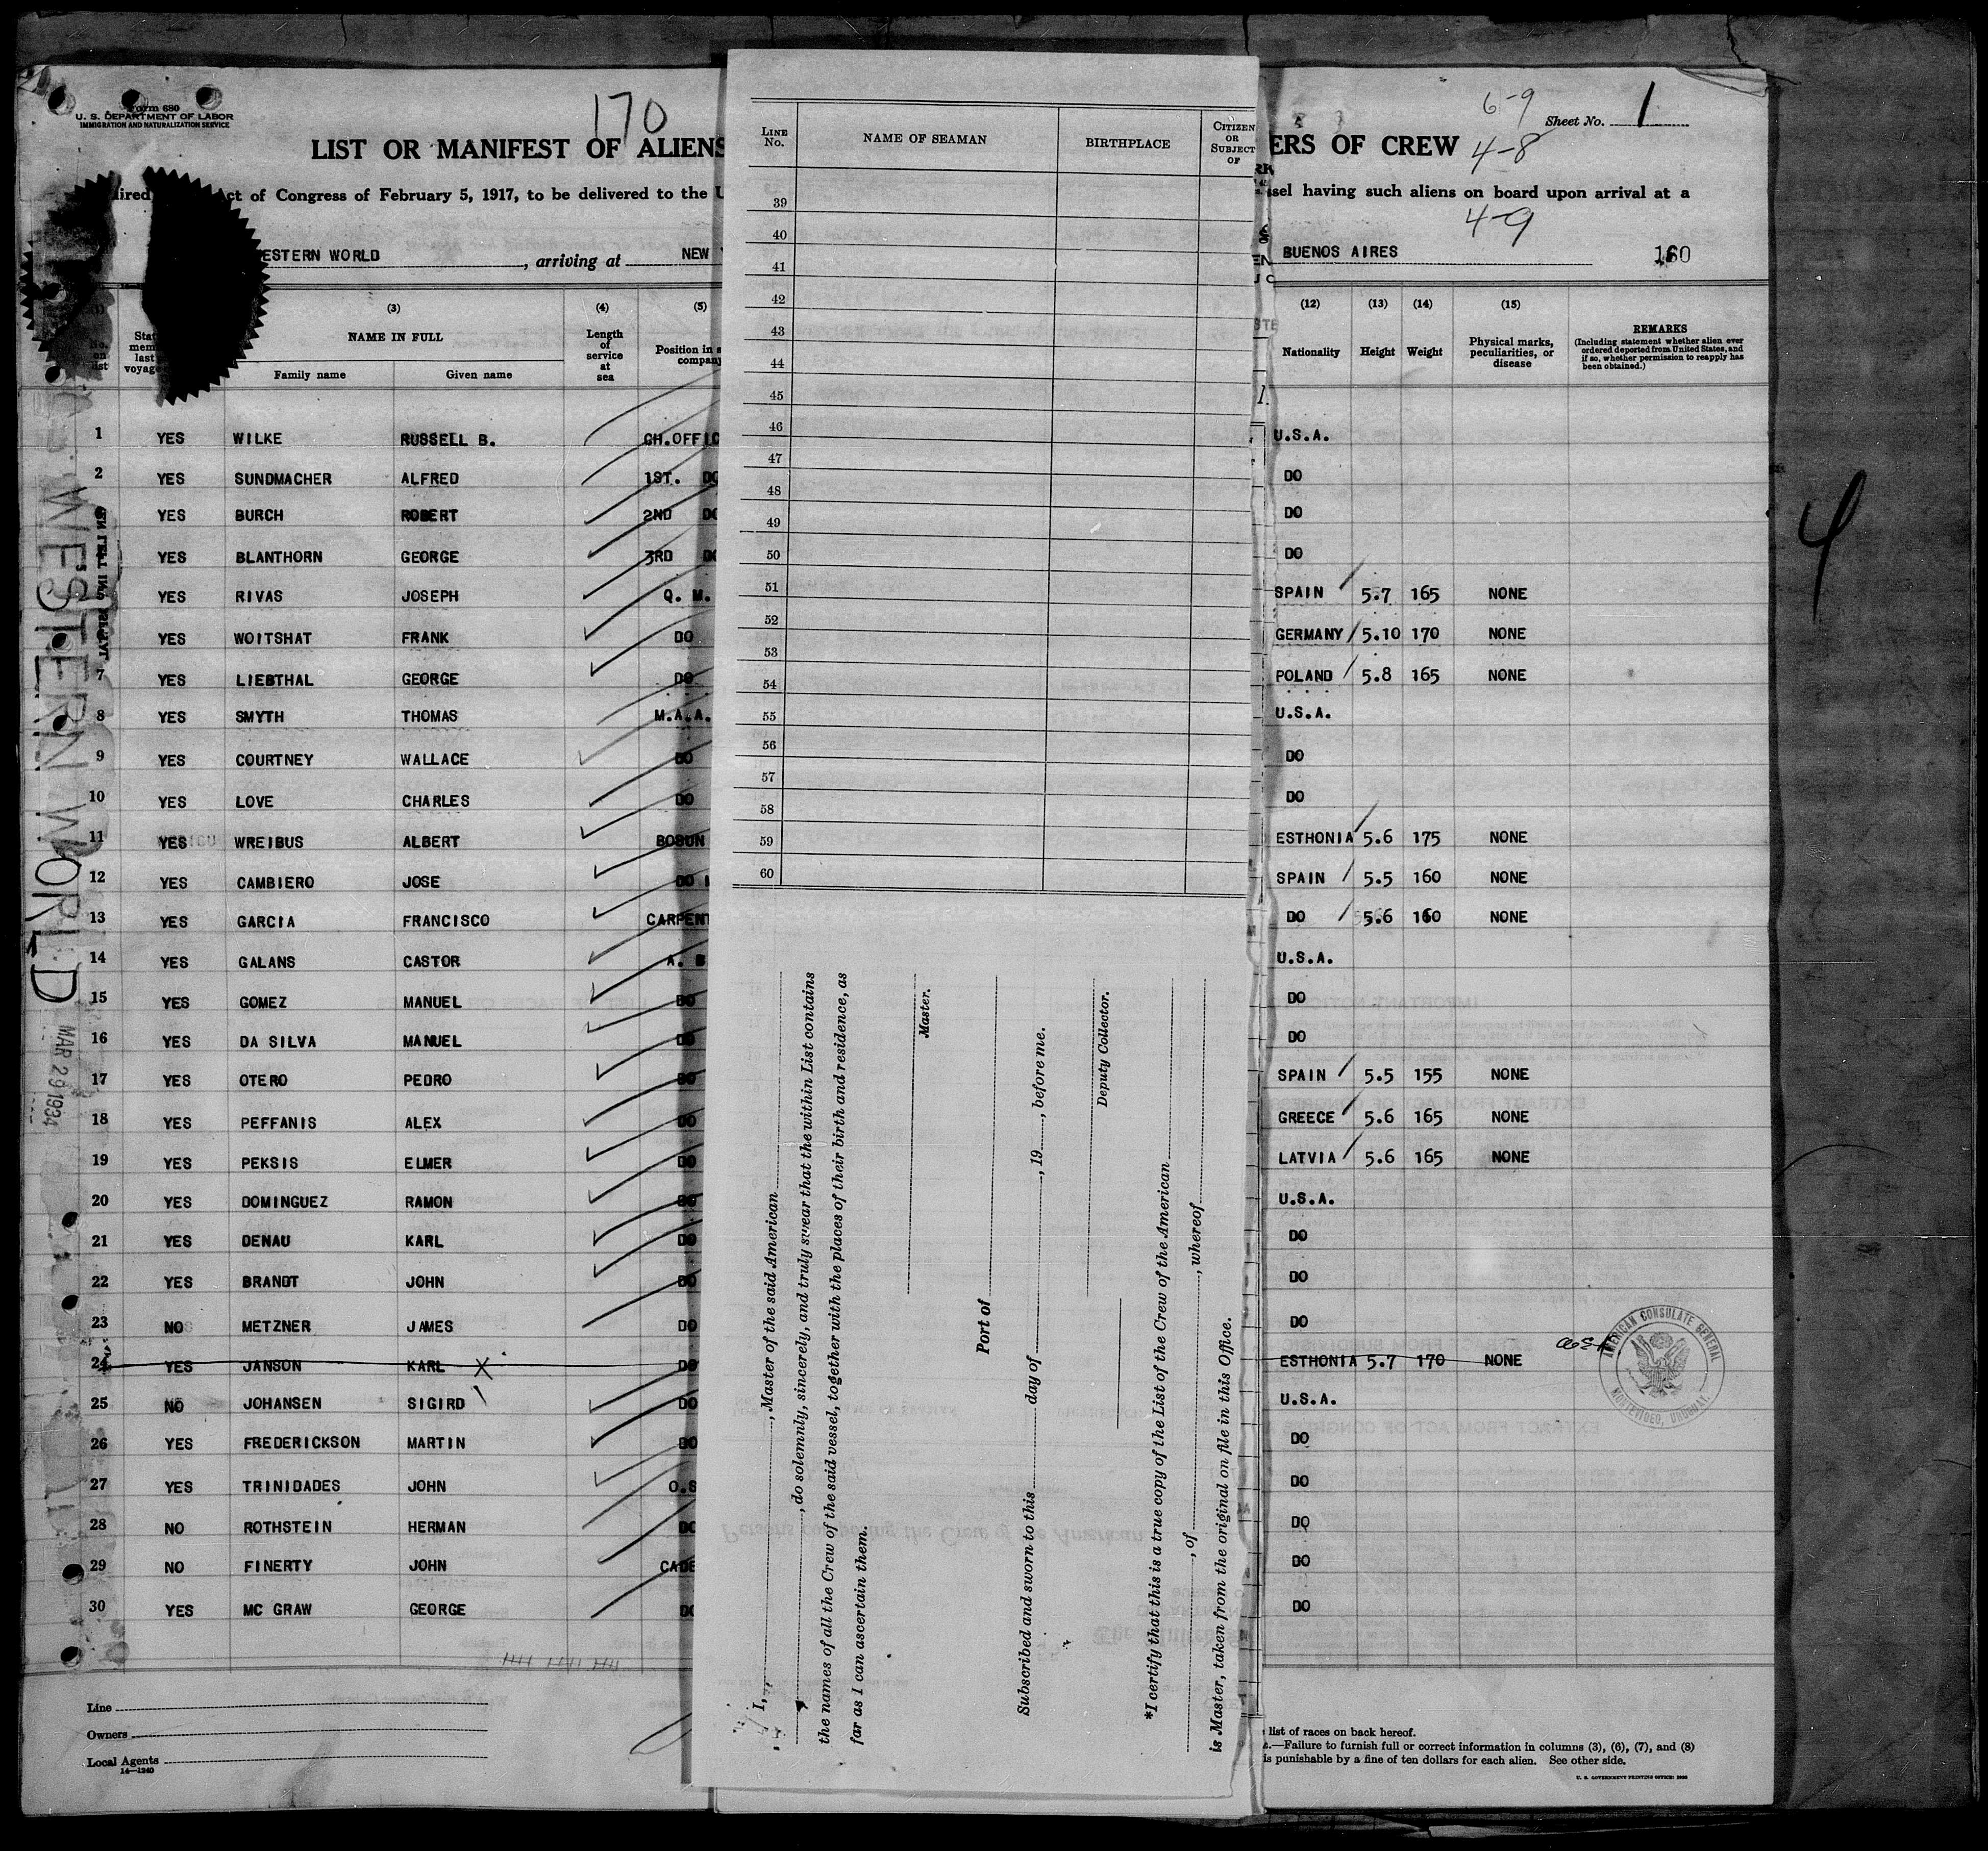 170
Form 680
U. S. DEPARTMENT OF LABOR
IMMIGRATION AND NATURALIZATION SERVICE
LIST OR MANIFEST OF ALIENS
ct of Congress of February 5, 1917, to be delivered to the U
ESTERN WORLD, arriving at NEW
(3) (4) (5)
No. on list
NAME IN FULL
Family name Given name
Length of service at sea
Position in
company
1 YES WILKE RUSSELL B. CH.OFFIC
2 YES SUNDMACHER ALFRED 1ST. DO
YES BURCH ROBERT 2ND DO
YES BLANTHORN GEORGE 3RD DO
YES RIVAS JOSEPH Q. M.
YES WOITSHAT FRANK DO
7 YES LIEBTHAL GEORGE DO
8 YES SMYTH THOMAS M.A.A.
9 YES COURTNEY WALLACE DO
10 YES LOVE CHARLES DO
11 YES WREIBUS ALBERT BOSUN
12 YES CAMBIERO JOSE DO
13 YES GARCIA FRANCISCO CARPENT
14 YES GALANS CASTOR A. B
15 YES GOMEZ MANUEL DO
16 YES DA SILVA MANUEL DO
17 YES OTERO PEDRO DO
18 YES PEFFANIS ALEX DO
19 YES PEKSIS ELMER DO
20 YES DOMINGUEZ RAMON DO
21 YES DENAU KARL DO
22 YES BRANDT JOHN DO
23 NO METZNER JAMES DO
24 YES JANSON KARL X DO
25 NO JOHANSEN SIGIRD DO
26 YES FREDERICKSON MARTIN DO
27 YES TRINIDADES JOHN O.S
28 NO ROTHSTEIN HERMAN DO
29 NO FINERTY JOHN CADE
30 YES MC GRAW GEORGE DO
Line
Owners
Local Agents
14—1240
WESTERN WORLD
MAR 29 1934
LINE No. NAME OF SEAMAN BIRTHPLACE CITIZEN OR SUBJECT OF
39
40
41
42
43
44
45
46
47
48
49
50
51
52
53
54
55
56
57
58
59
60
I,
, Master of the said American
, do solemnly, sincerely, and truly swear that the within List contains
the names of all the Crew of the said vessel, together with the places of their birth and residence, as
far as I can ascertain them.
Master.
Port of
Subscribed and sworn to this day of , 19 , before me.
Deputy Collector.
*I certify that this is a true copy of the List of the Crew of the American
, of , whereof
is Master, taken from the original on file in this Office.
6-9
Sheet No. 1
ERS OF CREW
4-8
ssel having such aliens on board upon arrival at a
4-9
BUENOS AIRES
(12) (13) (14) (15)
Nationality Height Weight
Physical marks, peculiarities, or disease
REMARKS
(Including statement whether alien ever ordered deported from United States, and if so, whether permission to reapply has been obtained.)
U.S.A.
DO
DO
DO
SPAIN 5.7 165 NONE
GERMANY 5.10 170 NONE
POLAND 5.8 165 NONE
U.S.A.
DO
DO
ESTHONIA 5.6 175 NONE
SPAIN 5.5 160 NONE
DO 5.6 160 NONE
U.S.A.
DO
DO
SPAIN 5.5 155 NONE
GREECE 5.6 165 NONE
LATVIA 5.6 165 NONE
U.S.A.
DO
DO
DO
ESTHONIA 5.7 170 NONE
U.S.A.
DO
DO
DO
DO
DO
AMERICAN CONSULATE GENERAL
MONTEVIDEO, URUGUAY.
list of races on back hereof.
—Failure to furnish full or correct information in columns (3), (6), (7), and (8)
is punishable by a fine of ten dollars for each alien. See other side.
U. S. GOVERNMENT PRINTING OFFICE:
4